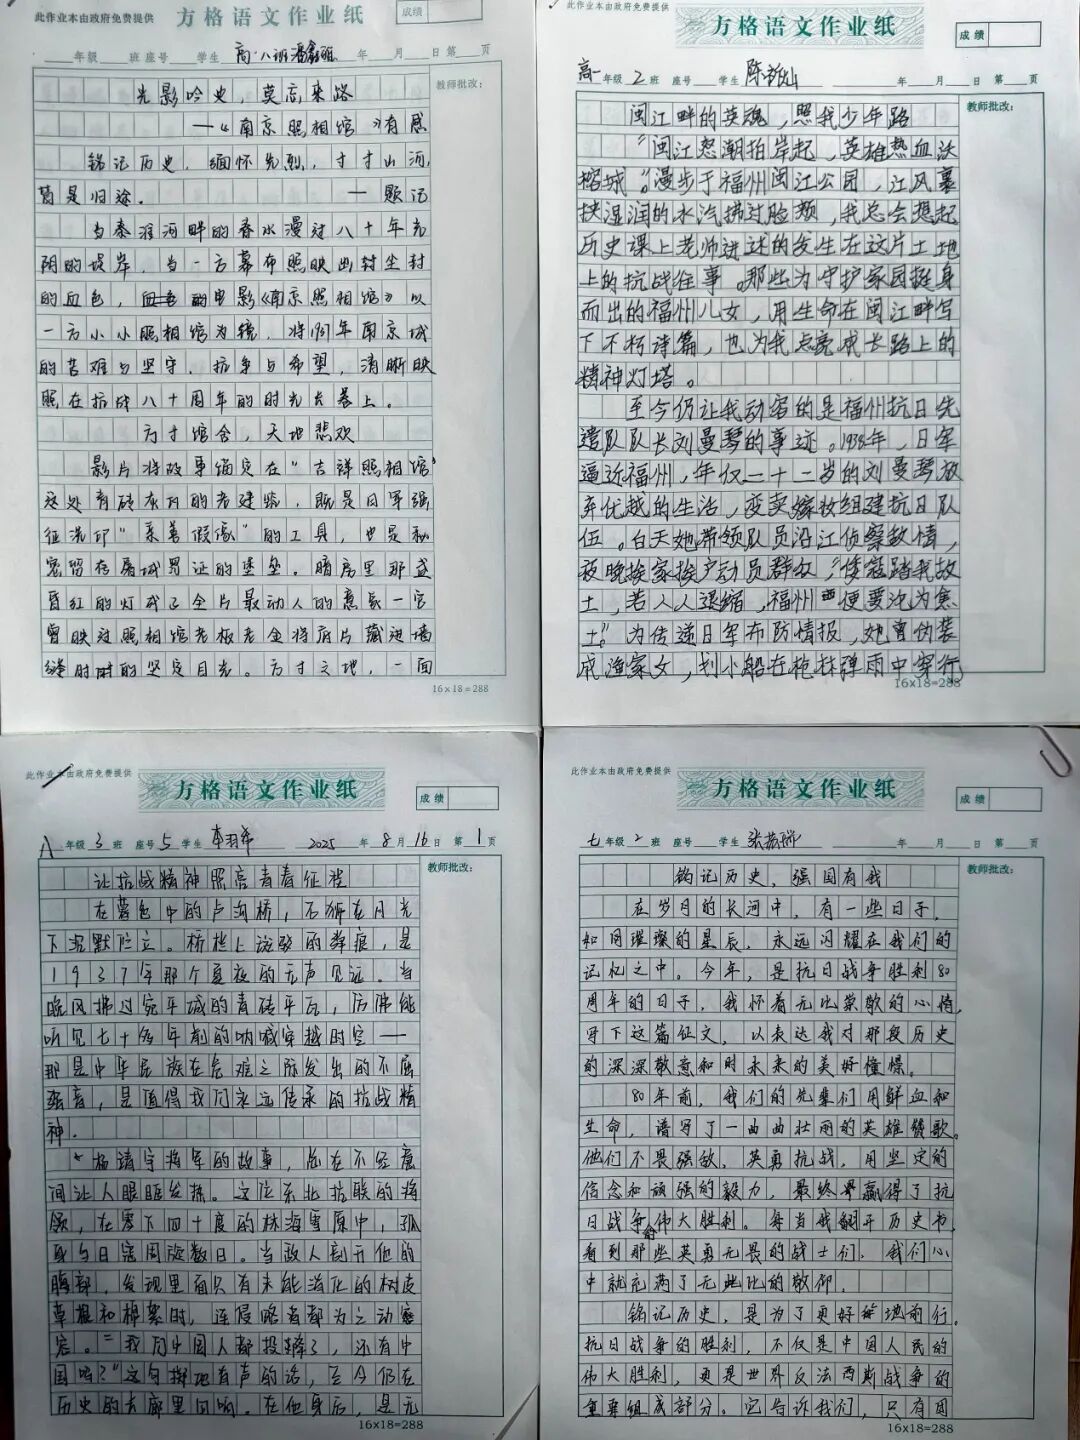 此作业本由政府免费提供
方格语文作业纸
成绩
年级 班 座号 学生 高一八班 年 月 日 第 页
教师批改：
光影吟史，莫忘来路
——《南京照相馆》有感
铭记历史，缅怀先烈，寸寸山河，
皆是归途。 ——题记
当秦淮河畔的香水漫过八十年光
阴的堤岸，当一方幕布照映出封尘封
的血色，电影《南京照相馆》以
一方小小照相馆为镜，将1937年南京城
的苦难与坚守，抗争与希望，清晰映
照在抗战八十周年的时光长卷上。
方寸馆舍，天地悲欢
影片将故事锚定在“吉祥照相馆”
这处青砖灰瓦的老建筑，既是日军强
征洗印“亲善假像”的工具，也是秘
密留存屠城罪证的堡垒。暗房里那盏
昏红的灯成了全片最动人的意象—它
曾映过照相馆老板老金将底片藏进墙
缝时的坚定目光。方寸之地，一面
16×18=288
方格语文作业纸
成绩
高一年级 2 班 座号 学生 陈 年 月 日 第 页
教师批改：
闽江畔的英魂，照我少年路
“闽江怒潮拍岸起，英雄热血沃
榕城。”漫步于福州闽江公园，江风裹
挟湿润的水汽拂过脸颊，我总会想起
历史课上老师讲述的发生在这片土地
上的抗战往事。那些为守护家园挺身
而出的福州儿女，用生命在闽江畔写
下不朽诗篇，也为我点亮成长路上的
精神灯塔。
至今仍让我动容的是福州抗日先
遣队队长刘曼琴的事迹。1938年，日军
逼近福州，年仅二十二岁的刘曼琴放
弃优越的生活，变卖嫁妆组建抗日队
伍。白天她带领队员沿江侦察敌情，
夜晚挨家挨户动员群众，“倭寇踏我故
土，若人人退缩，福州便要沦为焦
土。”为传递日军布防情报，她曾伪装
成渔家女，划小船在枪林弹雨中穿行，
16×18=288
此作业本由政府免费提供
方格语文作业纸
成绩
八 年级 3 班 座号 5 学生 李羽希 2025 年 8 月 16 日 第 1 页
教师批改：
让抗战精神照亮青春征途
在暮色中的卢沟桥，石狮在月光
下沉默伫立。桥栏上斑驳的弹痕，是
1937年那个夏夜的无声见证。当
晚风拂过宛平城的青砖平瓦，仿佛能
听见七十多年前的呐喊穿越时空——
那是中华民族在危难之际发出的不屈
强音，是值得我们永远传承的抗战精
神。
杨靖宇将军的故事，总在不经意
间让人眼眶发热。这位东北抗联的将
领，在零下四十度的林海雪原中，孤
身与日寇周旋数日。当敌人剖开他的
腹部，发现里面只有未能消化的树皮
草根和棉絮时，连侵略者都为之动容
。“我们中国人都投降了，还有中
国吗？”这句掷地有声的话，至今仍在
历史的长廊里回响。在他身后，是无
16×18=288
此作业本由政府免费提供
方格语文作业纸
成绩
七 年级 2 班 座号 学生 张 年 月 日 第 页
教师批改：
铭记历史，强国有我
在岁月的长河中，有一些日子，
如同璀璨的星辰，永远闪耀在我们的
记忆之中。今年，是抗日战争胜利80
周年的日子，我怀着无比崇敬的心情，
写下这篇征文，以表达我对那段历史
的深深敬意和对未来的美好憧憬。
80年前，我们的先辈们用鲜血和
生命，谱写了一曲曲壮丽的英雄赞歌。
他们不畏强敌，英勇抗战，用坚定的
信念和顽强的毅力，最终赢得了抗
日战争的伟大胜利。每当我翻开历史书，
看到那些英勇无畏的战士们，我们心
中就充满了无比的敬仰。
铭记历史，是为了更好地前行。
抗日战争的胜利，不仅是中国人民的
伟大胜利，更是世界反法西斯战争的
重要组成部分。它告诉我们，只有团
16×18=288